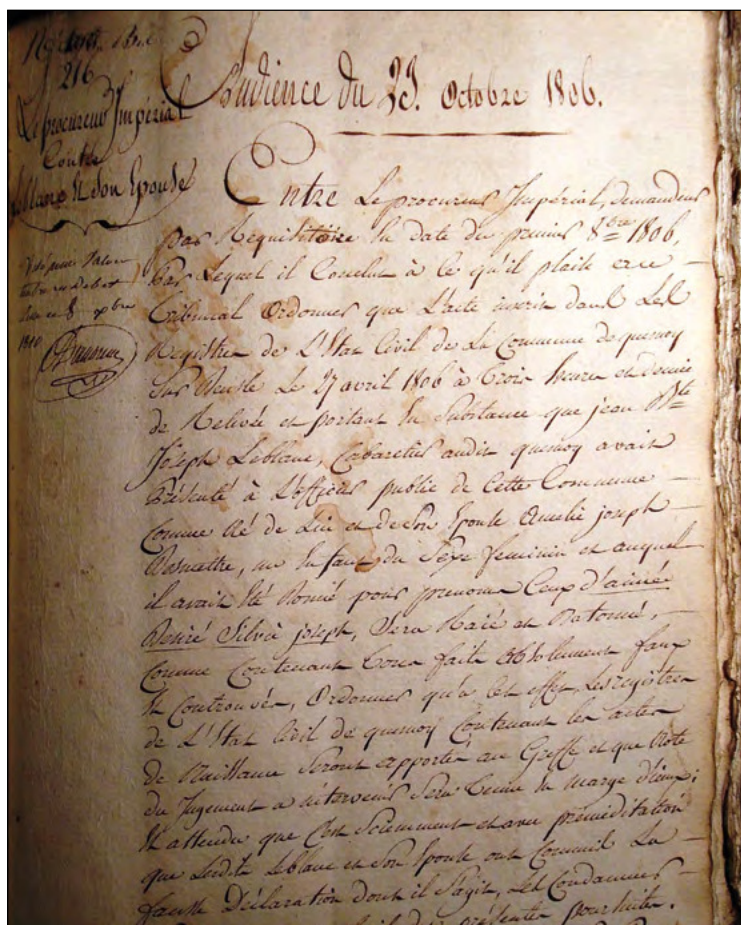 216
Le procureur Impérial
Contre
Leblanc Et Son Epouse
Audience du 23. Octobre 1806.
Entre Le procureur Impérial, demandeur
par Requisitoire En date du premier 8bre 1806,
par Lequel il Conclut à ce qu'il plaise au
Tribunal Ordonner que L'acte inscrit dans Les
Registres de L'Etat Civil de La Commune de quesnoy
Sur Deusle Le 27 avril 1806 à Trois heures et demie
de Relivée et portant En Substance que jean Bte
Joseph Leblanc, Cabaretier audit quesnoy avait
Présenté à L'officier public de Cette Commune
Comme Né de Lui et de Son Epouse Amelie joseph
un Enfant du Sexe feminin et auquel
il avait Eté Donné pour prenoms Ceux d'aimée
Desiré Silvie joseph, Sera Raié et Batonné,
Comme Contenant Tous faits Absolument faux
Et Controuvés, Ordonner qu'à Cet effet Les registres
de L'Etat Civil de quesnoy Contenant les actes
de Naissance Seront apportés au Greffe et que Note
du Jugement a intervenir Sera Tenue En marge d'iceux;
Et attendu que C'est Sciemment et avec prémeditation
que Ledit Leblanc et Son Epouse ont Commis La
fausse Déclaration dont il S'agit, Les Condamner
présentes poursuites.